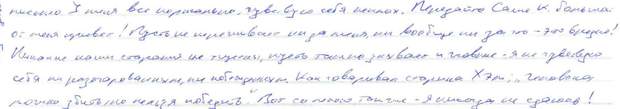 письмо. У меня всё нормально. Чувствую себя неплохо. Передайте Саше К. большой
от меня привет! Пусть не переживает ни за меня, ни вообще ни за что - это вредно!
Никакие наши старания не пусты, пусть только знает и главное - я не чувствую
себя ни разочарованным, ни побеждённым. Как говаривал старина Хэм: "Человека
можно убить, но нельзя победить". Вот со мной также - я никогда не сдамся!